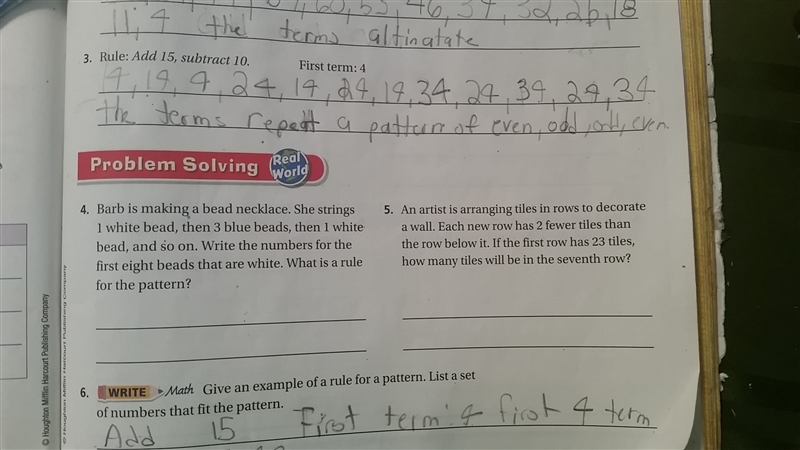 60, 53, 46, 39, 32, 26, 18
11, 4 the terms altinatate
3. Rule: Add 15, subtract 10. First term: 4
4, 19, 9, 24, 14, 29, 19, 34, 24, 39, 29, 34
the terms repeat a pattern of even, odd, odd, even.
Problem Solving Real World
4. Barb is making a bead necklace. She strings
1 white bead, then 3 blue beads, then 1 white
bead, and so on. Write the numbers for the
first eight beads that are white. What is a rule
for the pattern?
5. An artist is arranging tiles in rows to decorate
a wall. Each new row has 2 fewer tiles than
the row below it. If the first row has 23 tiles,
how many tiles will be in the seventh row?
6. WRITE Math Give an example of a rule for a pattern. List a set
of numbers that fit the pattern.
Add 15 First term: 4 first 4 term
© Houghton Mifflin Harcourt Publishing Company
© Houghton Mifflin Harcourt Publishing Company